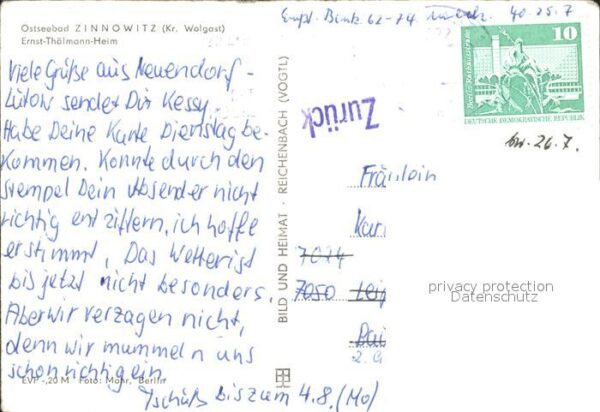 Ostseebad ZINNOWITZ (Kr. Wolgast)
Ernst-Thälmann-Heim
Viele Grüße aus Neuendorf-
Lütow sendet Dir Kessy.
Habe Deine Karte Dienstag be-
kommen. Konnte durch den
Stempel Dein Absender nicht
richtig entziffern, ich hoffe
er stimmt. Das Wetter ist
bis jetzt nicht besonders.
Aber wir verzagen nicht,
denn wir mummeln uns
schon richtig ein.
Tschüß bis zum 4.8. (Mo)
EVP -,20 M Foto: Mohr, Berlin
BILD UND HEIMAT · REICHENBACH (VOGTL)
62-74 40 25.7
Zurück
10
DEUTSCHE DEMOKRATISCHE REPUBLIK
26.7.
Fräulein
Kari
7074
7050 Leip
privacy protection
Datenschutz